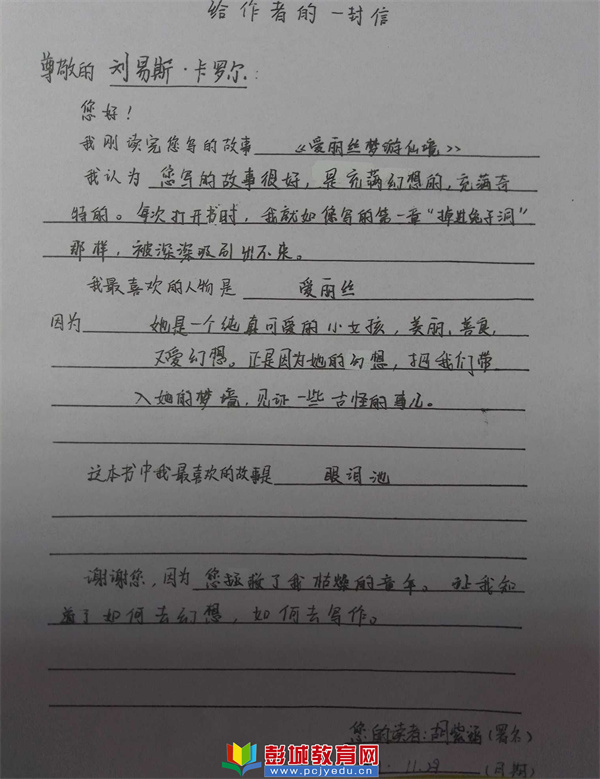 给作者的一封信
尊敬的 刘易斯·卡罗尔：
您好！
我刚读完您写的故事 《爱丽丝梦游仙境》
我认为 您写的故事很好，是充满幻想的，充满奇
特的。每次打开书时，我就如您写的第一章“掉进兔子洞”
那样，被深深吸引出不来。
我最喜欢的人物是 爱丽丝
因为 她是一个纯真可爱的小女孩，美丽、善良，
又爱幻想。正是因为她的幻想，把我们带
入她的梦境，见证一些古怪的事儿。
这本书中我最喜欢的故事是 眼泪池
谢谢您，因为 您拯救了我枯燥的童年。让我知
道了如何去幻想，如何去写作。
您的读者：胡 (署名)
(日期)
彭城教育网
www.pcjyedu.cn